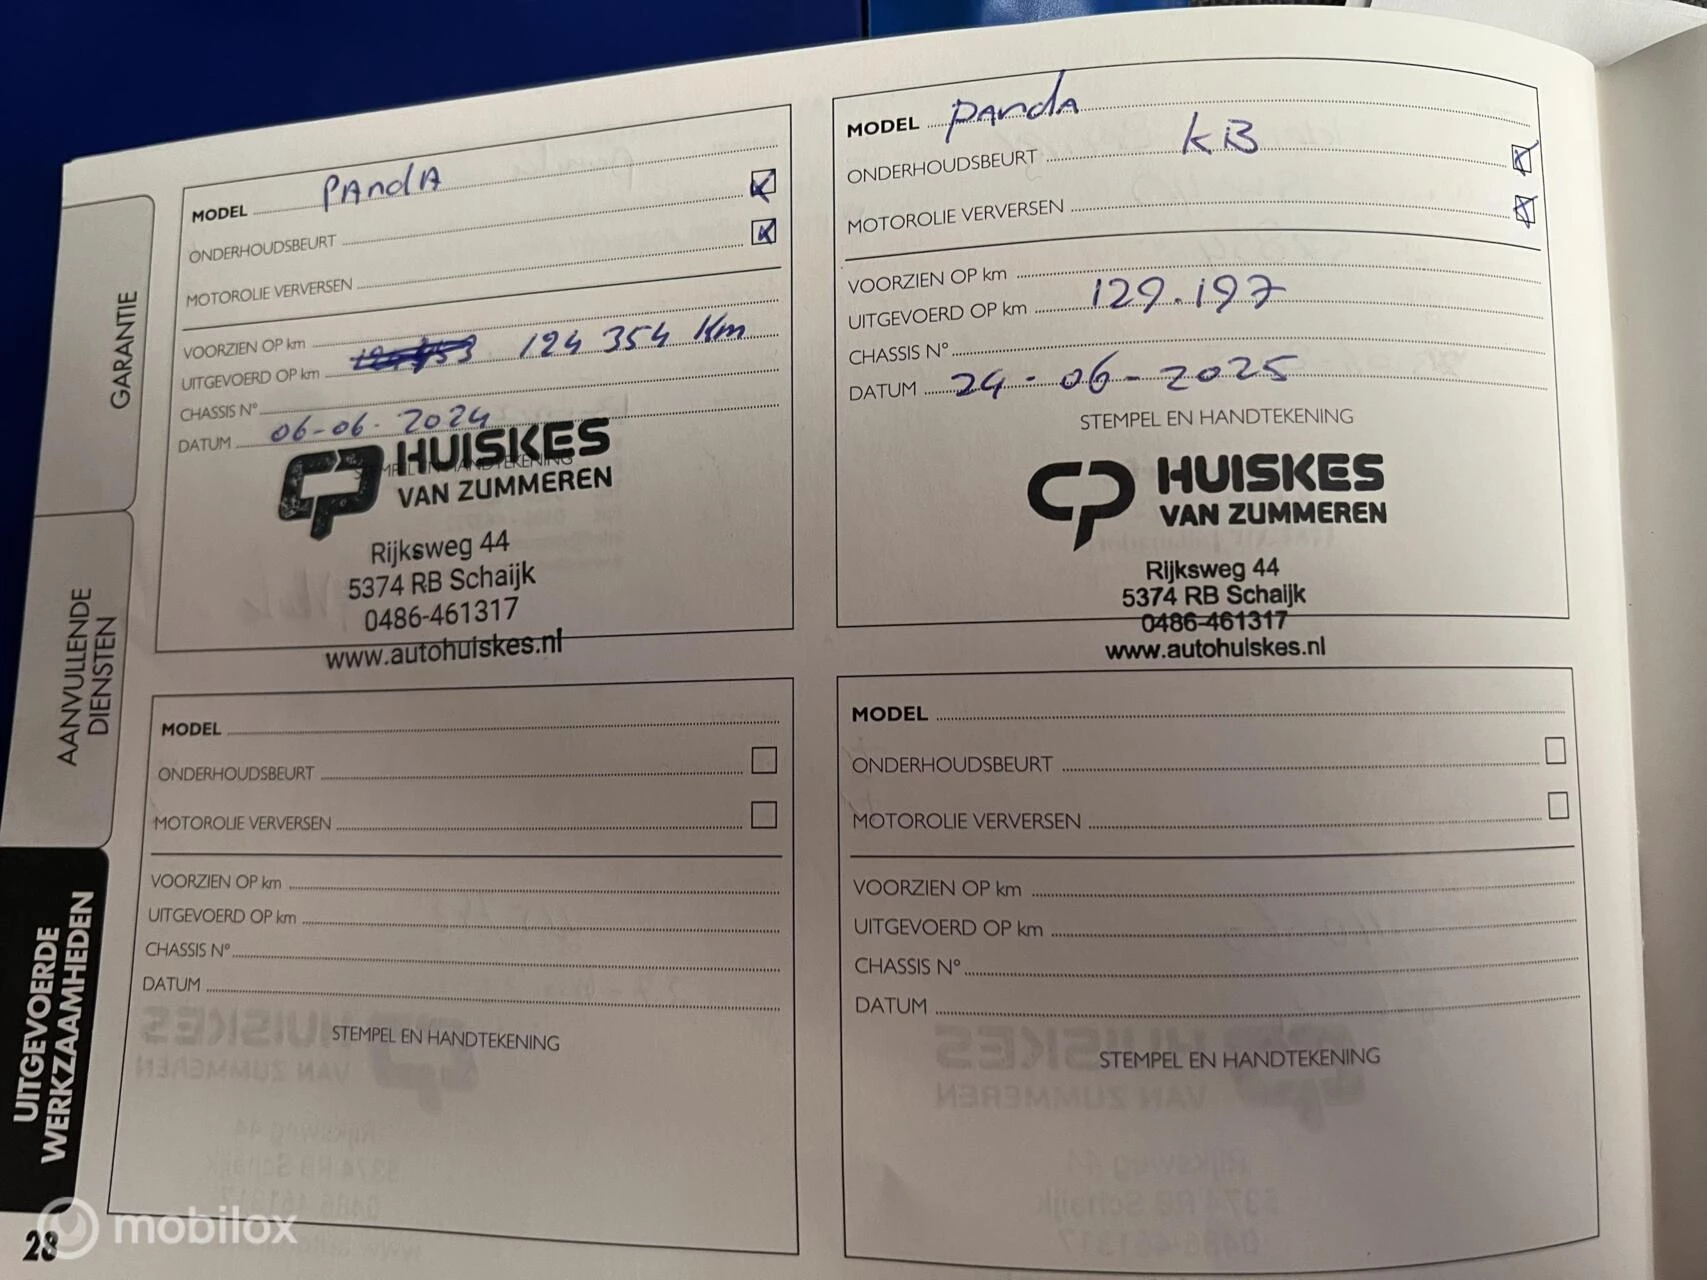 GARANTIE
AANVULLENDE
DIENSTEN
UITGEVOERDE
WERKZAAMHEDEN
MODEL PANDA
ONDERHOUDSBEURT
MOTOROLIE VERVERSEN
VOORZIEN OP km
UITGEVOERD OP km 124 354 Km
CHASSIS N°
DATUM 06-06-2024
STEMPEL EN HANDTEKENING
HUISKES
VAN ZUMMEREN
Rijksweg 44
5374 RB Schaijk
0486-461317
www.autohuiskes.nl
MODEL PANDA
ONDERHOUDSBEURT KB
MOTOROLIE VERVERSEN
VOORZIEN OP km
UITGEVOERD OP km 129.197
CHASSIS N°
DATUM 24-06-2025
STEMPEL EN HANDTEKENING
HUISKES
VAN ZUMMEREN
Rijksweg 44
5374 RB Schaijk
0486-461317
www.autohuiskes.nl
MODEL
ONDERHOUDSBEURT
MOTOROLIE VERVERSEN
VOORZIEN OP km
UITGEVOERD OP km
CHASSIS N°
DATUM
STEMPEL EN HANDTEKENING
MODEL
ONDERHOUDSBEURT
MOTOROLIE VERVERSEN
VOORZIEN OP km
UITGEVOERD OP km
CHASSIS N°
DATUM
STEMPEL EN HANDTEKENING
28
mobilox